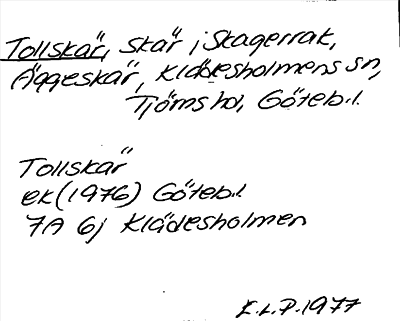 Tollskär, skär i Skagerrak,
Äggeskär, Klädesholmens sn,
Tjörns hd, Göteb.l.
Tollskär
ek (1976) Göteb.l.
7A 6j Klädesholmen
E.L.P. 1977